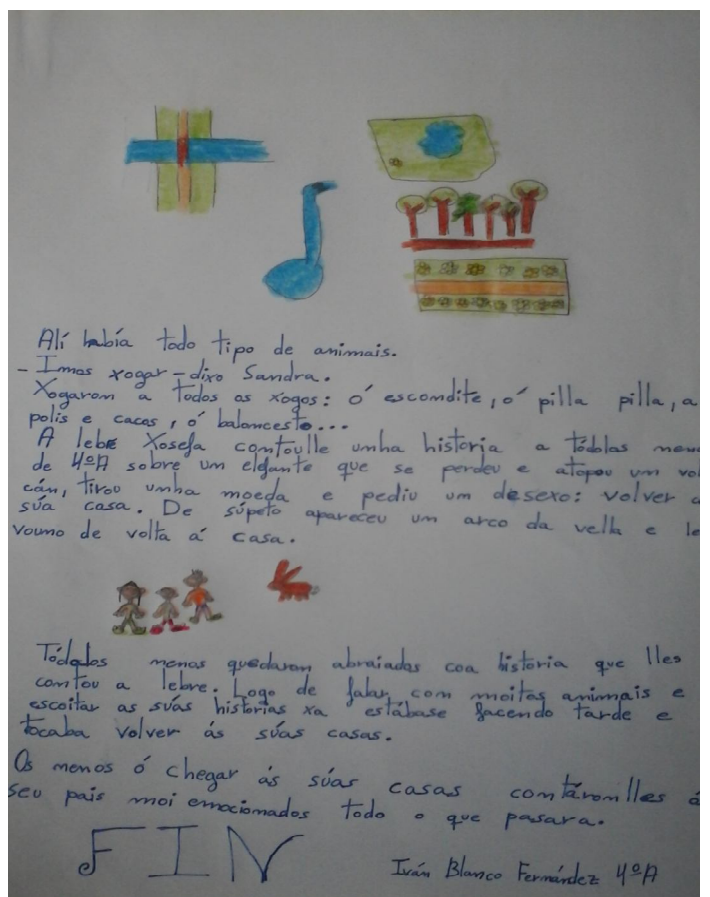 Alí había todo tipo de animais.
- Imos xogar - dixo Sandra.
Xogaron a todos os xogos: ó escondite, ó pilla pilla, a
polis e cacos, ó baloncesto...
A lebre Xosefa contoulle unha historia a tódolos nenos
de 4ºA sobre un elefante que se perdeu e atopou un vol
cán, tirou unha moeda e pediu un desexo: volver a
súa casa. De súpeto apareceu un arco da vella e le
vouno de volta á casa.
Tódolos nenos quedaron abraiados coa historia que lles
contou a lebre. Logo de falar con moitos animais e
escoitar as súas historias xa estábase facendo tarde e
tocaba volver ás súas casas.
Os nenos ó chegar ás súas casas contáronlles á
seu pais moi emocionados todo o que pasara.
FIN
Iván Blanco Fernández 4ºA